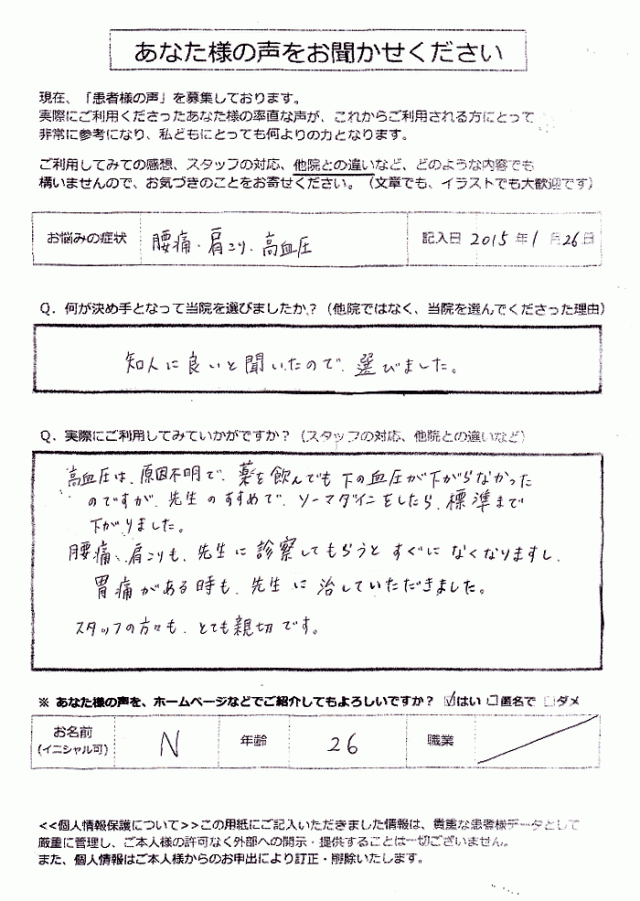 あなた様の声をお聞かせください
現在、「患者様の声」を募集しております。
実際にご利用くださったあなた様の率直な声が、これからご利用される方にとって
非常に参考になり、私どもにとっても何よりの力となります。
ご利用してみての感想、スタッフの対応、他院との違いなど、どのような内容でも
構いませんので、お気づきのことをお寄せください。（文章でも、イラストでも大歓迎です）
お悩みの症状 腰痛、肩こり、高血圧 記入日 2015年1月26日
Q．何が決め手となって当院を選びましたか？（他院ではなく、当院を選んでくださった理由）
知人に良いと聞いたので、選びました。
Q．実際にご利用してみていかがですか？（スタッフの対応、他院との違いなど）
高血圧は、原因不明で、薬を飲んでも下の血圧が下がらなかった
のですが、先生のすすめで、ソーマダインをしたら、標準まで
下がりました。
腰痛、肩こりも、先生に診察してもらうとすぐになくなりますし、
胃痛がある時も、先生に治していただきました。
スタッフの方々も、とても親切です。
※ あなた様の声を、ホームページなどでご紹介してもよろしいですか？ ☑はい □匿名で □ダメ
お名前 N 年齢 26 職業
(イニシャル可)
<<個人情報保護について>>この用紙にご記入いただきました情報は、貴重な患者様データとして
厳重に管理し、ご本人様の許可なく外部への開示・提供することは一切ございません。
また、個人情報はご本人様からのお申出により訂正・削除いたします。